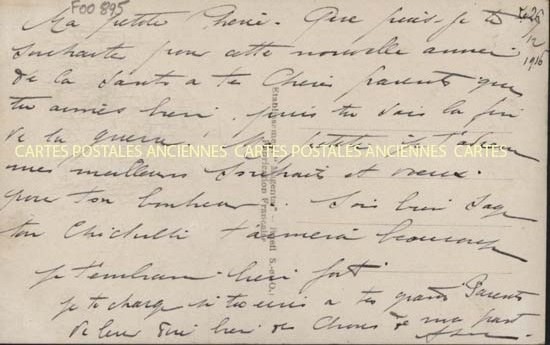 F00 895
Le 26
12
1916
Ma petite Chérie. Que puis-je te
souhaiter pour cette nouvelle année
de la Santé a te Cheris parents que
tu aimes bien, puis tu vois la fin
de la guerre, ma petite je t'adresse
CARTES POSTALES ANCIENNES CARTES POSTALES ANCIENNES CARTES POSTALES ANCIENNES
mes meilleurs Souhaits et voeux
pour ton bonheur. Sois bien Sage
ton t'aimera beaucoup
je t'embrasse bien fort
je te charge si tu ecris a tes grands Parents
de leur dire bien de Choses de ma part